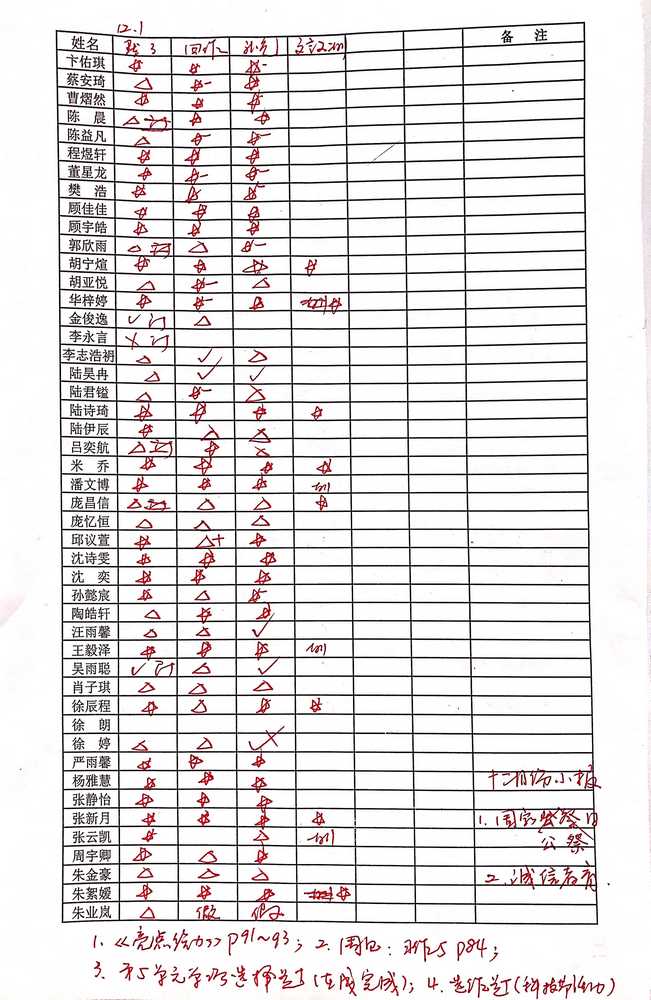 12.1
姓名 备 注
卞佑琪 ☆ ☆ ☆-
蔡安琦 △ ☆- ☆
曹熠然 ☆ ☆ ☆
陈 晨 △ ☆ ☆
陈益凡 △ ☆- ☆-
程煜轩 ☆ ☆ ☆
董星龙 ☆ ☆- ☆-
樊 浩 ☆ ☆ ☆-
顾佳佳 ☆ ☆ ☆
顾宇皓 ☆ ☆ ☆
郭欣雨 △ △ ☆-
胡宁煊 ☆ ☆ ☆ ☆
胡亚悦 △ ☆- △
华梓婷 ☆ ☆- ☆ ☆
金俊逸 ✓ 订 △
李永言 × 订
李志浩礽 △ ✓ △
陆昊冉 △ ✓ ✓
陆君镒 △ ☆- △
陆诗琦 ☆ ☆ ☆ ☆
陆伊辰 ☆ △ △
吕奕航 △ ☆ △
米 乔 ☆ ☆ ☆ ☆
潘文博 ☆ ☆ ☆
庞昌信 △ △ △ ☆
庞忆恒 △ △ △
邱议萱 ☆ △+ ☆
沈诗雯 ☆ ☆ ☆
沈 奕 ☆ ☆ ☆
孙懿宸 ☆ △ ☆-
陶皓轩 △ ☆ ☆
汪雨馨 △ △ ✓
王毅泽 ☆ ☆ ☆
吴雨聪 ✓ 订 △ ✓
肖子琪 △ △ △
徐辰程 ☆ △ ☆ ☆
徐 朗
徐 婷 △ △ ✓×
严雨馨 ☆ ☆ ☆
杨雅慧 ☆ ☆ ☆
张静怡 ☆ ☆ ☆
张新月 ☆ ☆ ☆ ☆ 1. 国家 日
张云凯 ☆ △ 公祭
周宇卿 ☆ △ ☆
朱金豪 △ △ △ 2. 诚信教育
朱絮媛 ☆ ☆ ☆ ☆
朱业岚 △ 假 假
1. 《亮点给力》P91~93; 2. 周记: 习作5 P84;
3. 第5单元 选择 (在 完成); 4.